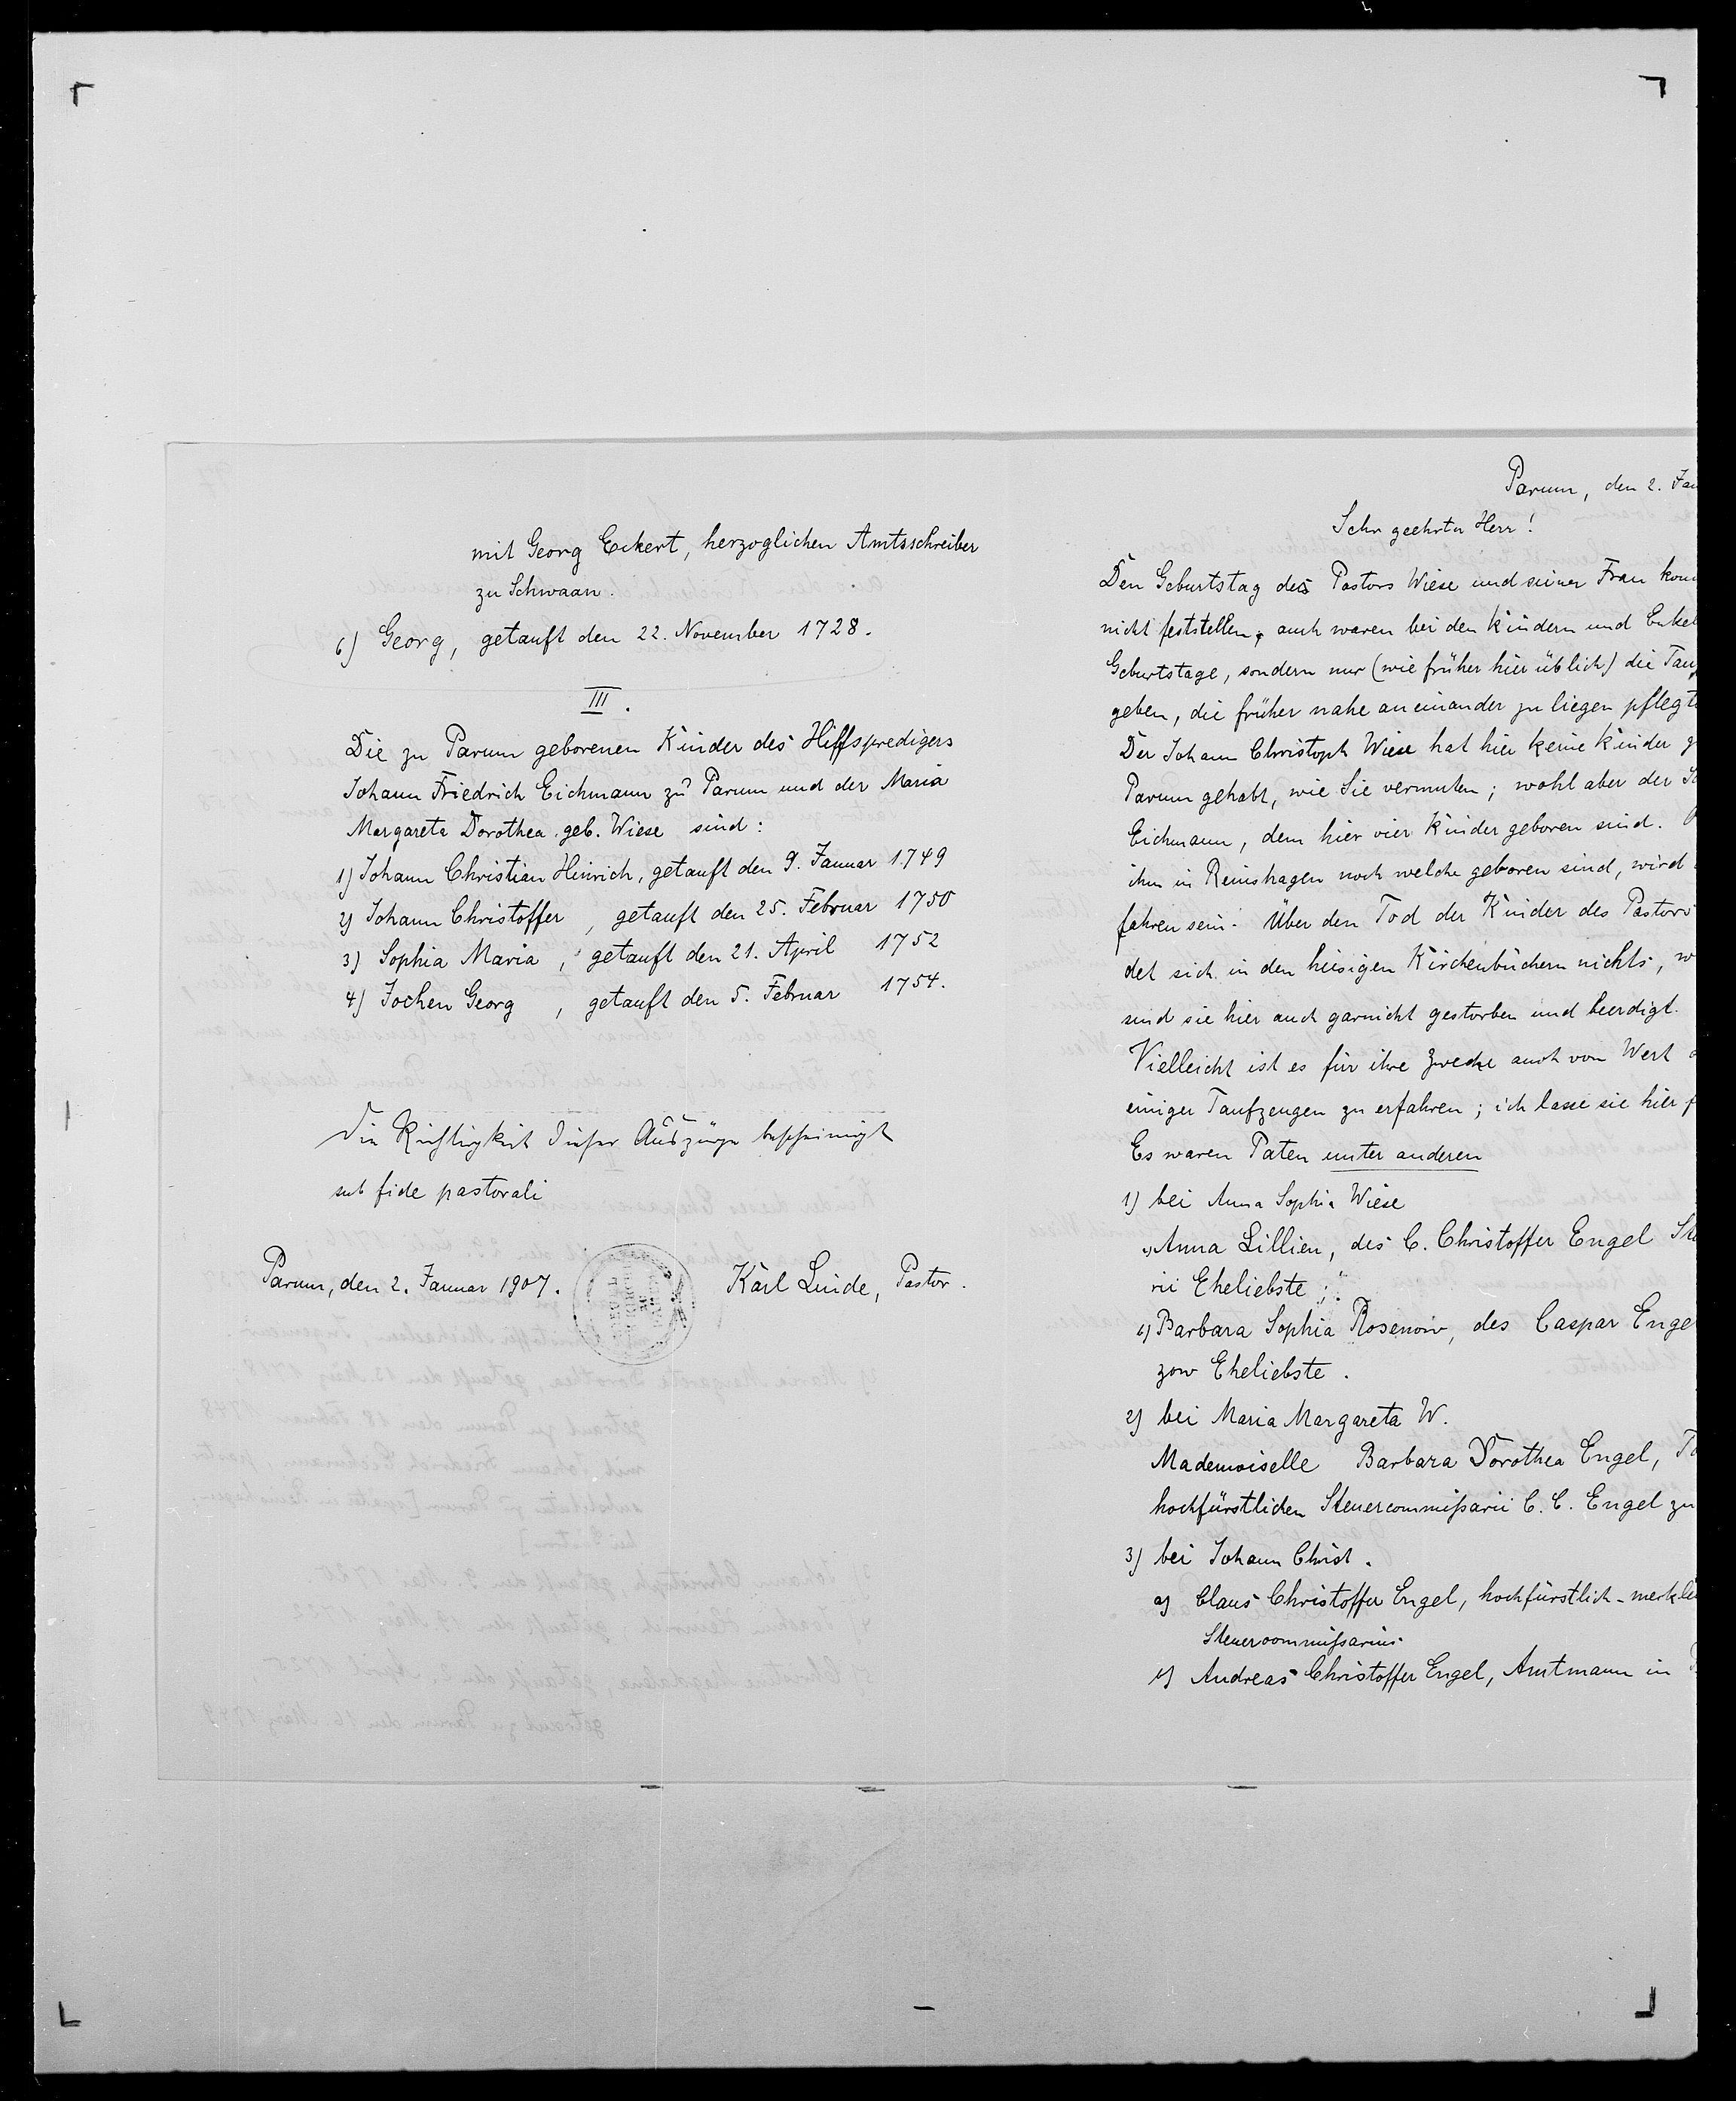 mit Georg Eckert, herzoglichen Amtsschreiber
zu Schwaan.
6) Georg, getauft den 22. November 1728.
III.
Die zu Parum geborenen Kinder des Hilfspredigers
Johann Friedrich Eichmann zu Parum und der Maria
Margareta Dorothea geb. Wiese sind:
1) Johann Christian Hinrich, getauft den 9. Januar 1749
2) Johann Christoffer, getauft den 25. Februar 1750
3) Sophia Maria, getauft den 21. April 1752
4) Jochen Georg, getauft den 5. Februar 1754.
Die Richtigkeit dieser Auszüge bescheinigt
sub fide pastorali
Parum, den 2. Januar 1907. Karl Linde, Pastor.
Parum, den 2. Jan
Sehr geehrter Herr!
Den Geburtstag des Pastors Wiese und seiner Frau kon
nicht feststellen, auch waren bei den Kindern und Enkel
Geburtstage, sondern nur (wie früher hier üblich) die Tau
geben, die früher nahe aneinander zu liegen pflegt
Der Johann Christoph Wiese hat hier keine Kinder g
Parum gehabt, wie Sie vermuten; wohl aber der
Eichmann, dem hier vier Kinder geboren sind.
ihm in Reinshagen noch welche geboren sind, wird
fahren sein. Über den Tod der Kinder des Pastors
det sich in den hiesigen Kirchenbüchern nichts, w
sind sie hier auch garnicht gestorben und beerdigt.
Vielleicht ist es für ihre Zwecke auch von Wert
einiger Taufzeugen zu erfahren; ich lasse sie hier f
Es waren Paten unter anderen
1) bei Anna Sophia Wiese
Anna Lillien, des C. Christoffer Engel Ste
rii Eheliebste;
Barbara Sophia Rosenow, des Caspar Engel
zow Eheliebste.
2) bei Maria Margareta W.
Mademoiselle Barbara Dorothea Engel, To
hochfürstlichen Steuercommißarii C. C. Engel zu
3) bei Johann Christ.
a) Claus Christoffer Engel, hochfürstlich-meckle
Steuercommißarius
b) Andreas Christoffer Engel, Amtmann in